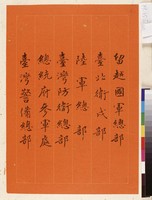 留越國軍總部
臺北衛戍部
陸軍總部
臺灣防衛總部
總統府參軍處
臺灣警備總部